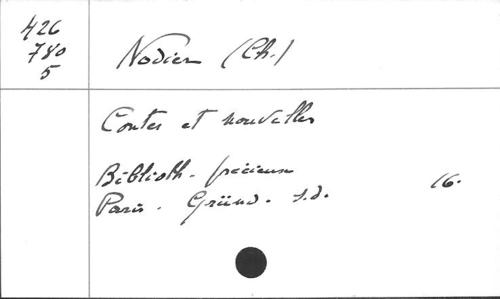 426
780
5
Nodier (Ch.)
Contes et nouvelles
Biblioth. précieuse
Paris. Gründ. s.d. 16.